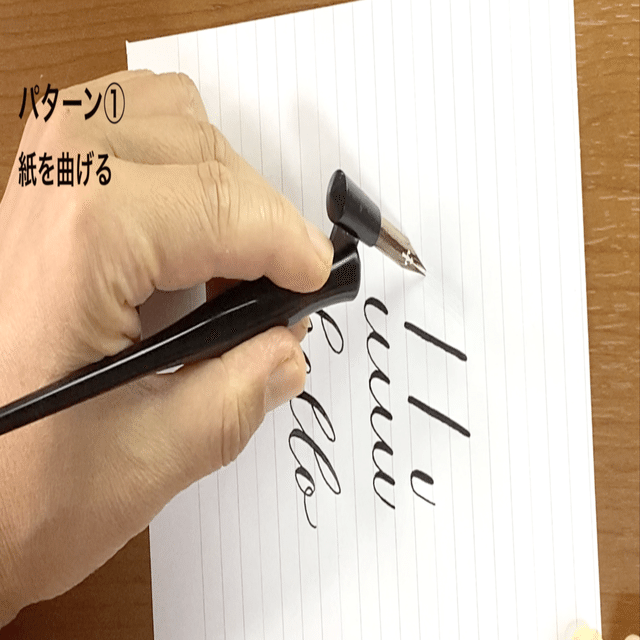 パターン①
紙を曲げる
hello